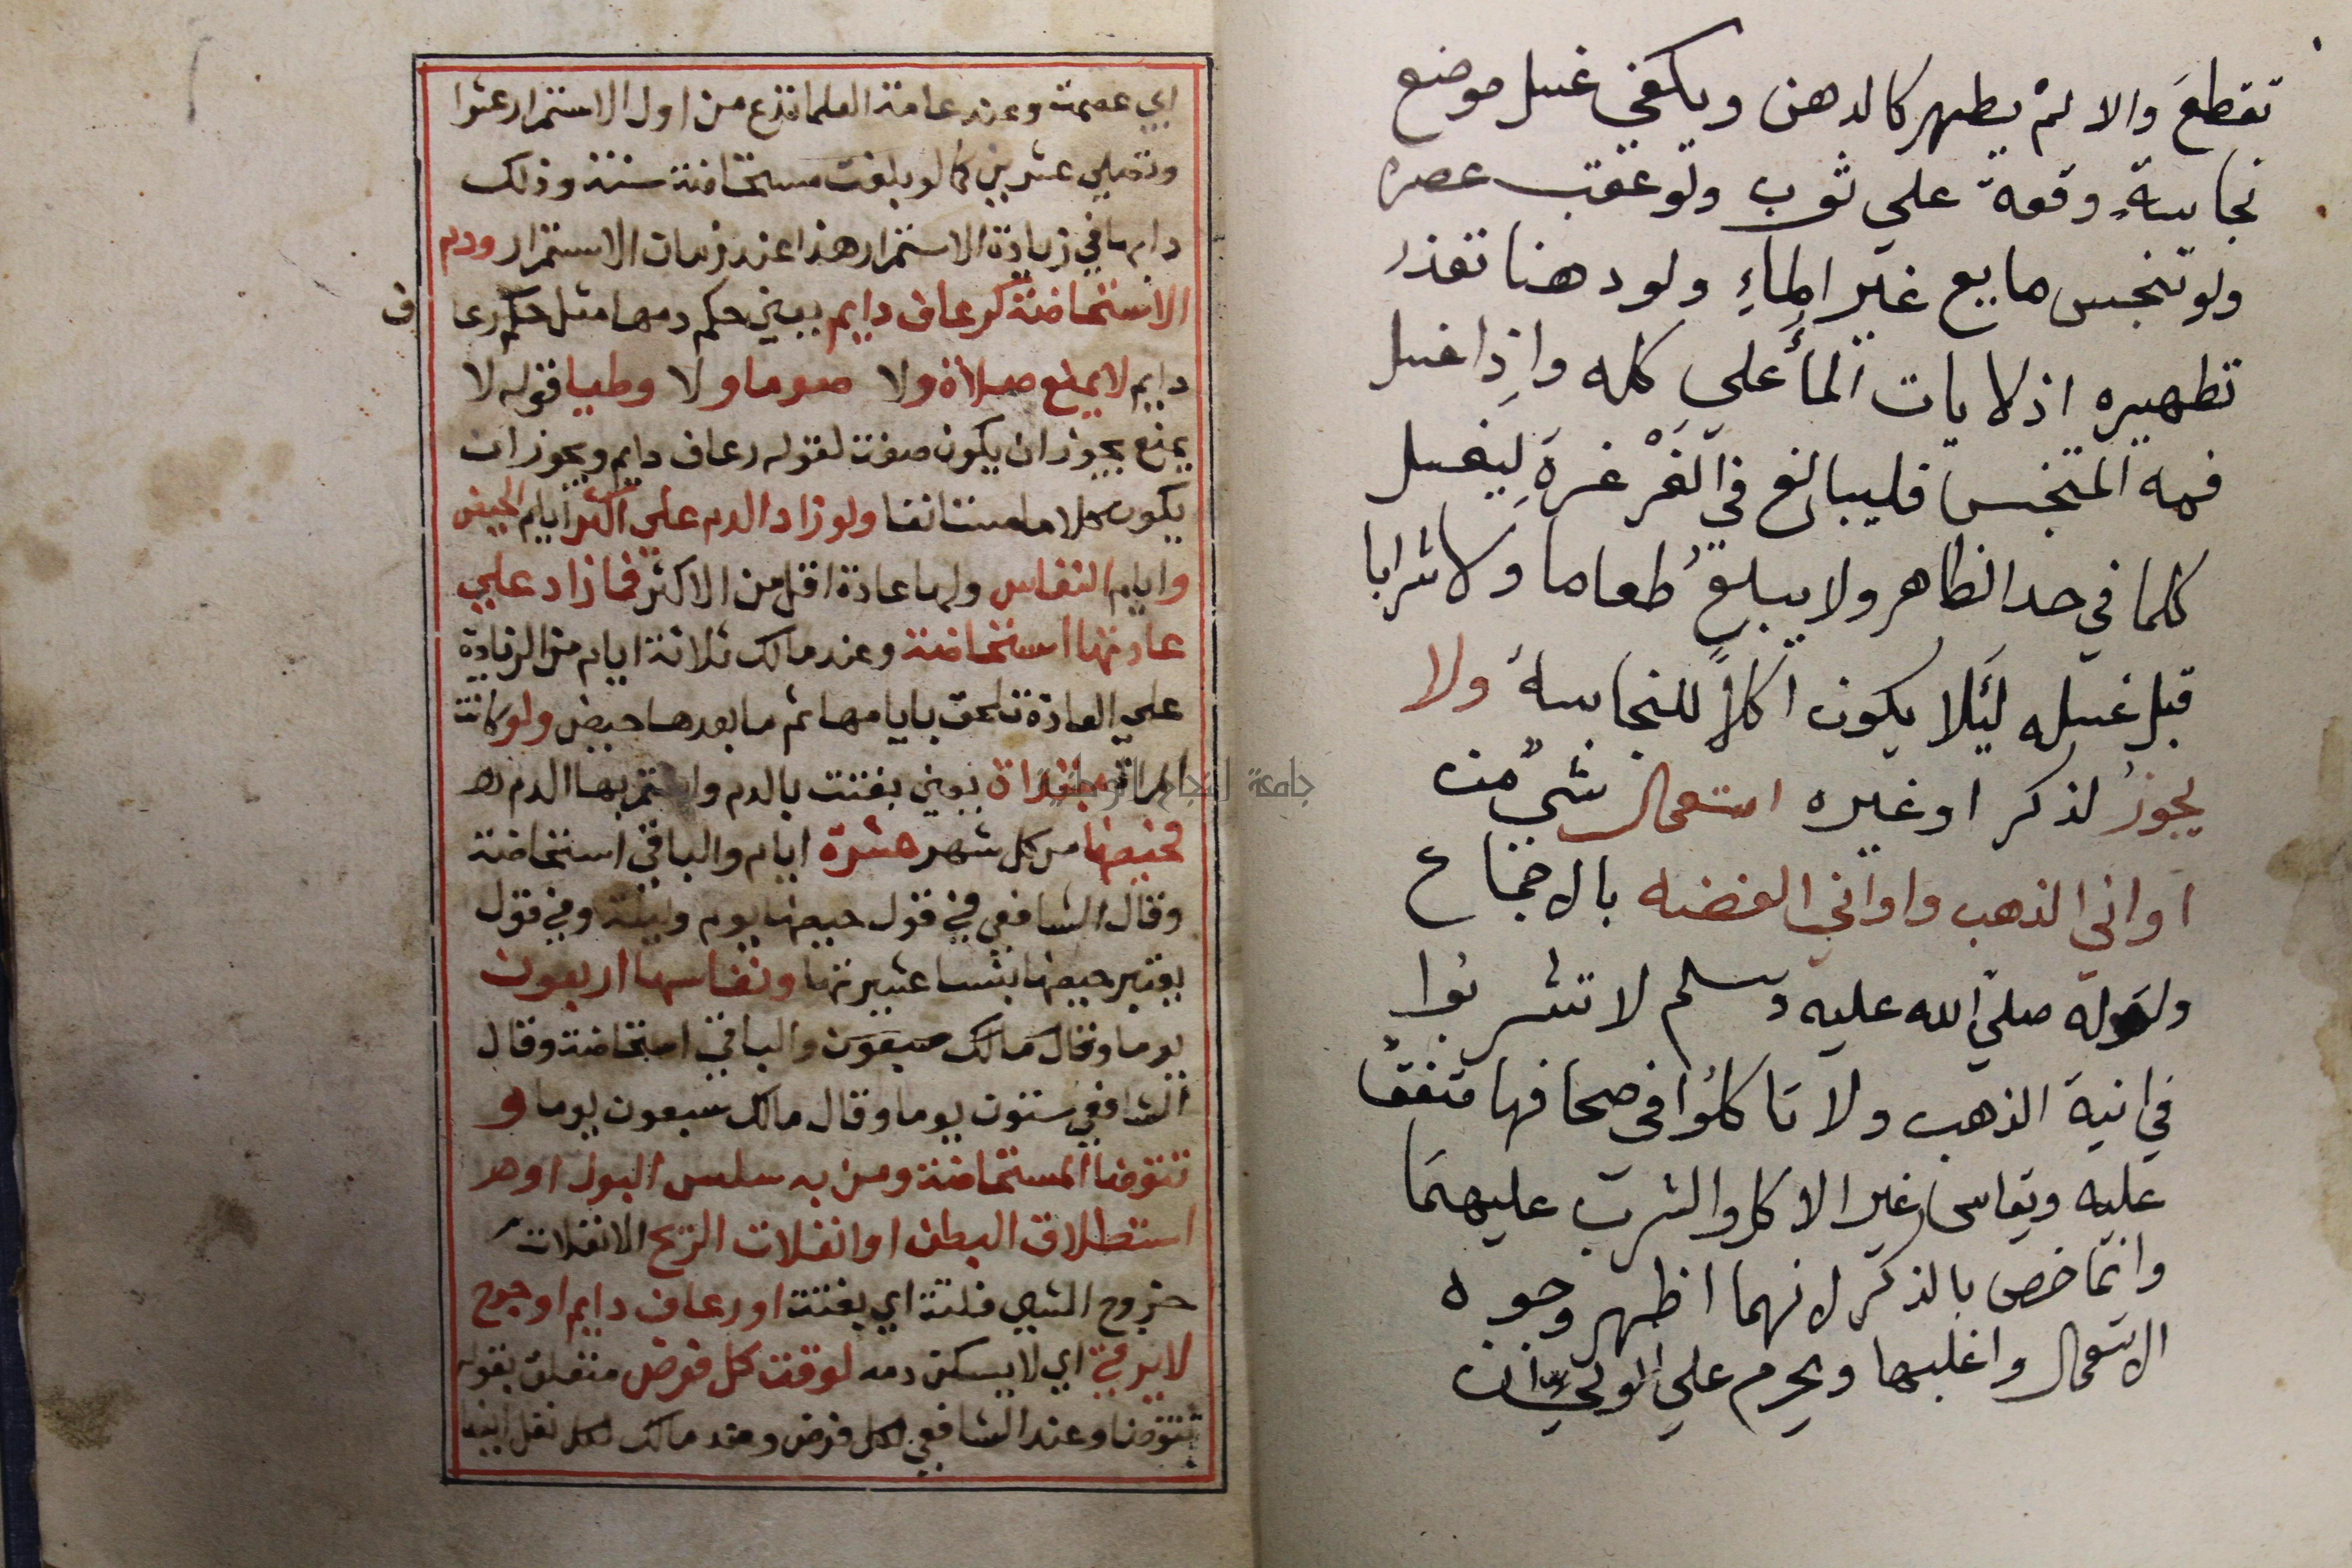 تقطعَ والا لمْ يطهر كالدهن ويكفي غسل موضع
نجاسةٍ وقعة علي ثوب ولو عقب عصره
ولو تنجس مايع غير الماءِ ولو دهنا تعذر
تطهيره اذ لا يات المأ علي كله واِذا غسل
فمه المتنجس فليبالغ في الغَرْغرةَ لِيغسل
كلما في حد الظاهر ولا يبلعُ طعاما وَلا شرابا
قبل غسله لَيَلا يكون اكلاً للنجاسة ولا
يجوزُ لذكر او غيره استعمال شيٌ من
اواني الذهب واواني الفضه بالاجماع
ولقوله صلي الله عليه وسلم لا تشربوا
في انية الذهب ولا تاكلوُا في صحافها متفقٌ
عليه ويقاس غير الاكل والشرب عليهمَا
وانما خص بالذكر لانهما اظهر وجوه
الاستعمال واغلبها ويحرم علي الولي ان
اي عصمة وعند عامة العلما تدع من اول الاستمرار عشرا
وتصلي عشرين كما لو بلغت مستحاضة سنة وذلك
دابها في زيادة الاستمرار هذا عند زمان الاستمرار ودم
الاستحاضة كرعاف دايم يعني حكم دمها مثل حكم رعا
ف
دايم لا يمنع صلاة ولا صوما ولا وطيا قوله لا
يمنع يجوز ان يكون صفة لقوله رعاف دايم ويجوز ان
يكون كلاما مستانفا ولو زاد الدم علي اكثر ايام الحيض
وايام النفاس ولها عادة اقل من الاكثر فما زاد علي
عادتها استحاضة وعند مالك ثلاثة ايام من الزيادة
علي العادة تلحق بايامها ثم ما بعدها حيض ولو كانت
امراة مبتداة يعني بغتت بالدم واستمر بها الدم
فحيضها من كل شهر عشرة ايام والباقي استحاضة
وقال الشافعي في قول حيضها يوم وليلة وفي قول
يعتبر حيضها بنسا عشيرتها ونفاسها اربعون
يوما وقال مالك سبعون والباقي استحاضة وقال
الشافعي ستون يوما وقال مالك سبعون يوما و
تتوضا المستحاضة ومن به سلس البول او
استطلاق البطن او انفلات الريح الانفلات
خروج الشي فلتة اي بغتة او رعاف دايم او جرح
لا يرقئ اي لا يسكن دمه لوقت كل فرض متعلق بقوله
تتوضا وعند الشافعي لكل فرض وعند مالك لكل نفل ايضا